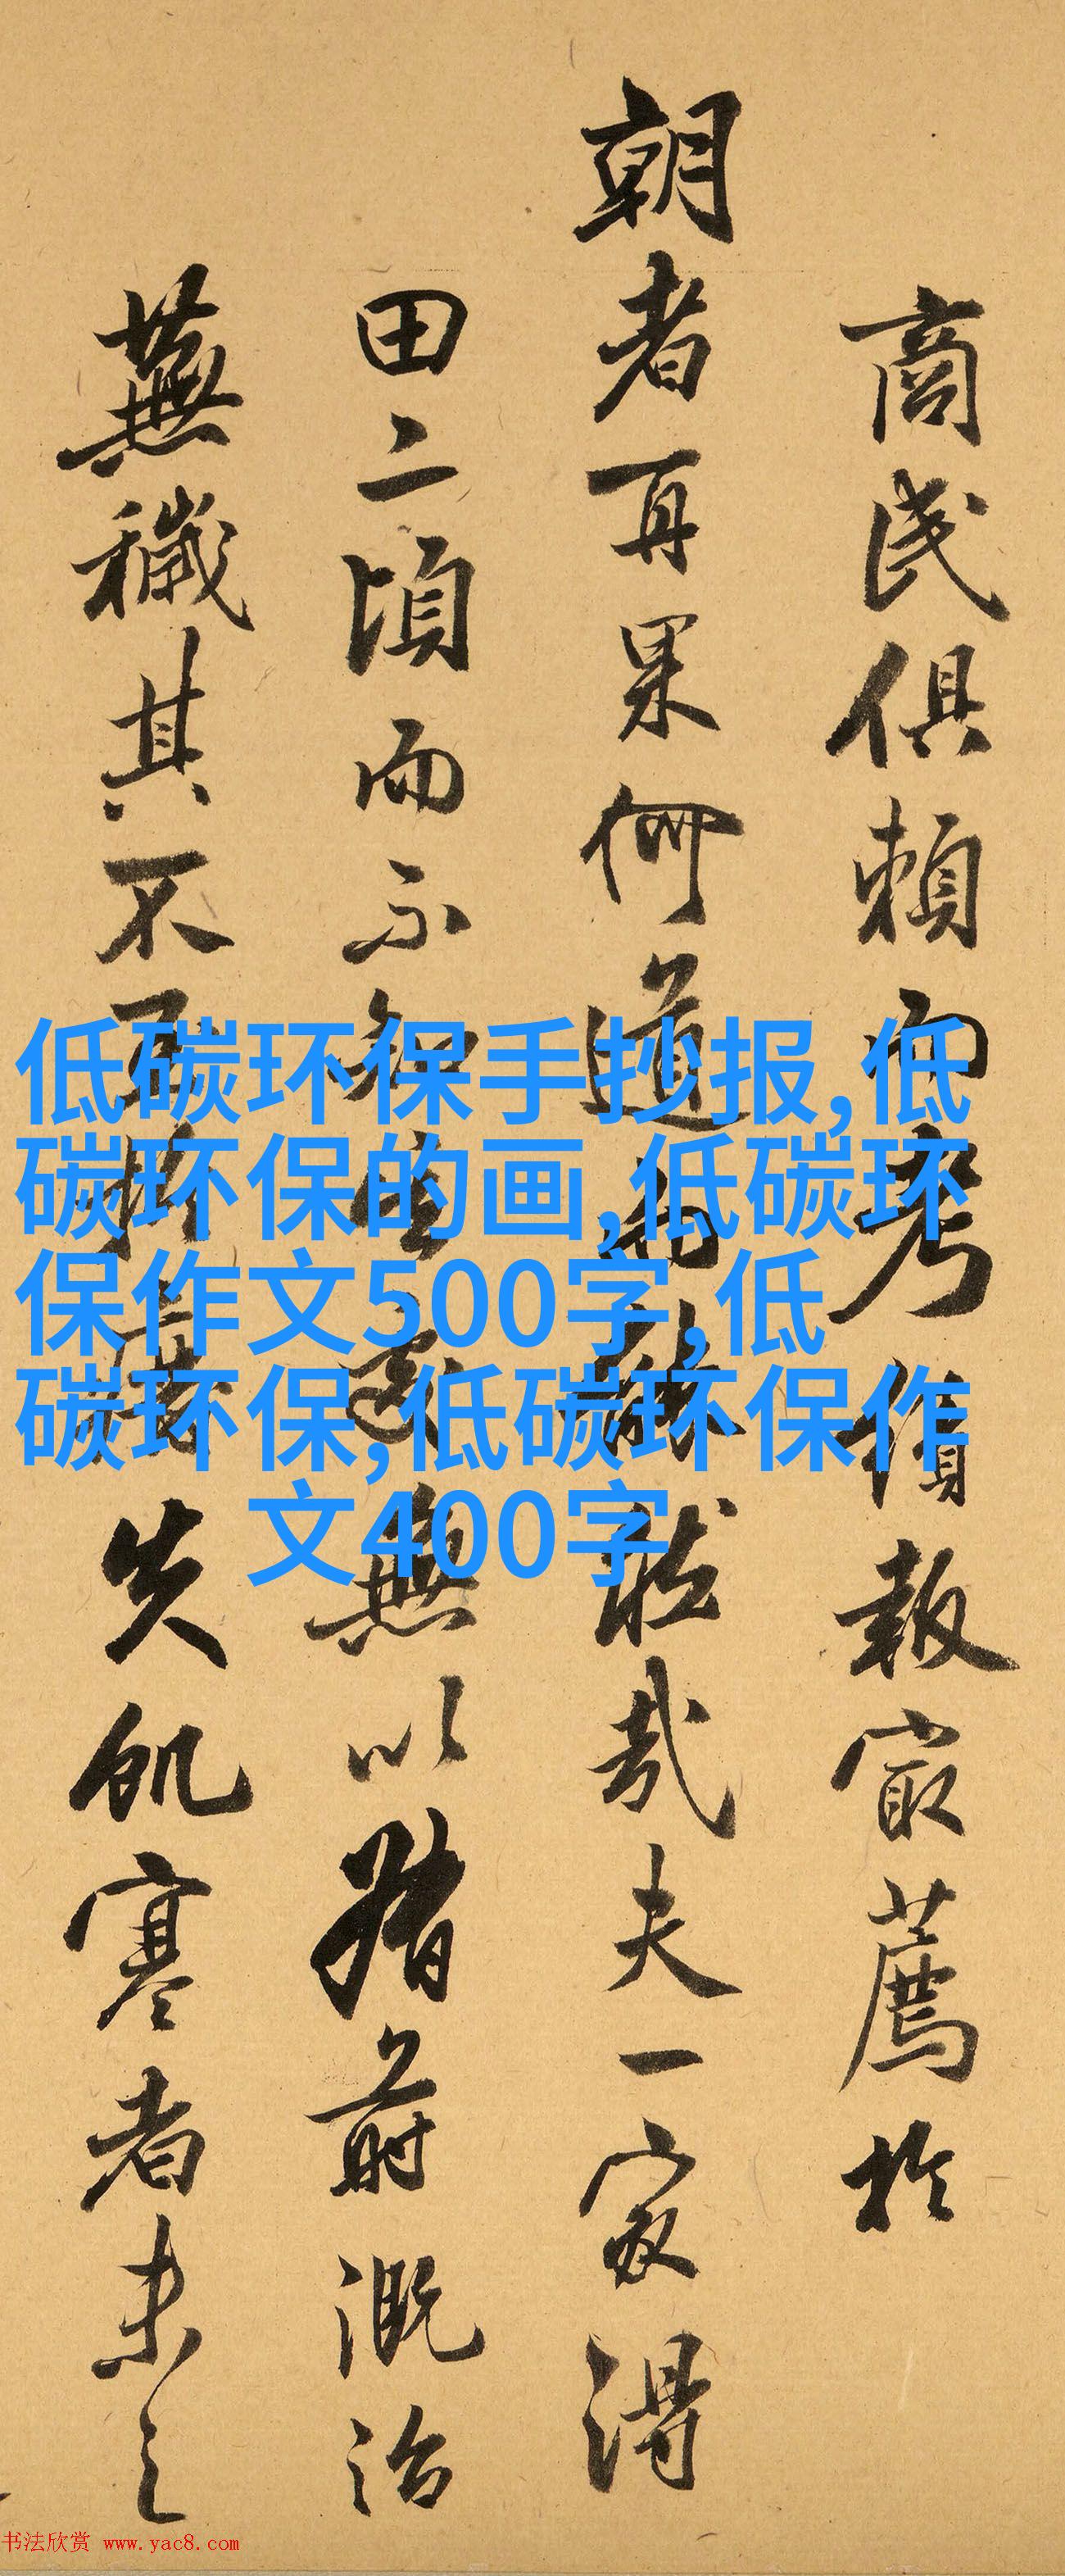 商民俱賴而考績報最薦於
朝者再果何道
哉夫一家得
田二頃而不知
無以
前溉治
蕪穢其不
失飢寒者未之
低碳环保手抄报,低
碳环保的画,低碳环
保作文500字,低
碳环保,低碳环保作
文400字
书法欣赏 www.yac8.com